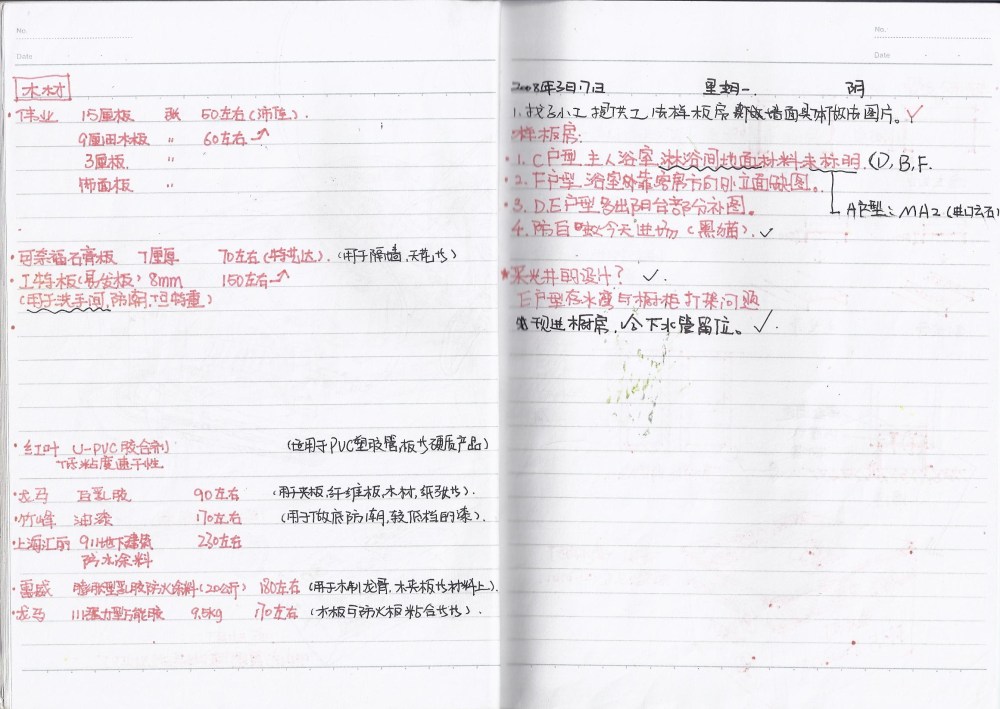 No.
Date
木材
·伟业 15厘板 张 50左右(沛隆).
9厘田木板 〃 60左右
3厘板. 〃
饰面板 〃
·可乐福石膏板 1厘厚 70左右(特艺达). (用于隔墙,天花等)
·工特板(易发板) 8mm 150左右
(用于洗手间,防潮,但特重)
·红叶 U-PVC胶合剂 (适用于PVC塑胶管,板等硬质产品)
低粘度速干性.
·龙马 豆乳胶 90左右 (用于夹板,纤维板,木材,纸张等).
·竹峰 油漆 170左右 (用于做底防潮,较低档的漆).
·上海汇丽 911地下建筑 230左右
防水涂料
·惠盛 膨胀型乳胶防火涂料(20公斤) 180左右 (用于木制龙骨,木夹板等材料上).
·龙马 111强力型万能胶 9.5kg 170左右 (木板与防火板粘合等等).
No.
Date
2008年3月17日 星期一. 阴
1.找 小工 工法样板房 墙面具体做法图片。
样板房:
·1. C户型主人浴室 淋浴间地面材料未标明. ①, B, F.
·2. F户型 浴室外靠客房方向外立面缺图。
A户型:MA2(进口云石)
·3. D.E户型多出阳台部分补图。
4. 防盗 今天进场(黑猫). ✓
★采光井的设计? ✓.
E户型存水湾与橱柜打架问题
现进橱房, 下水管留位。✓.